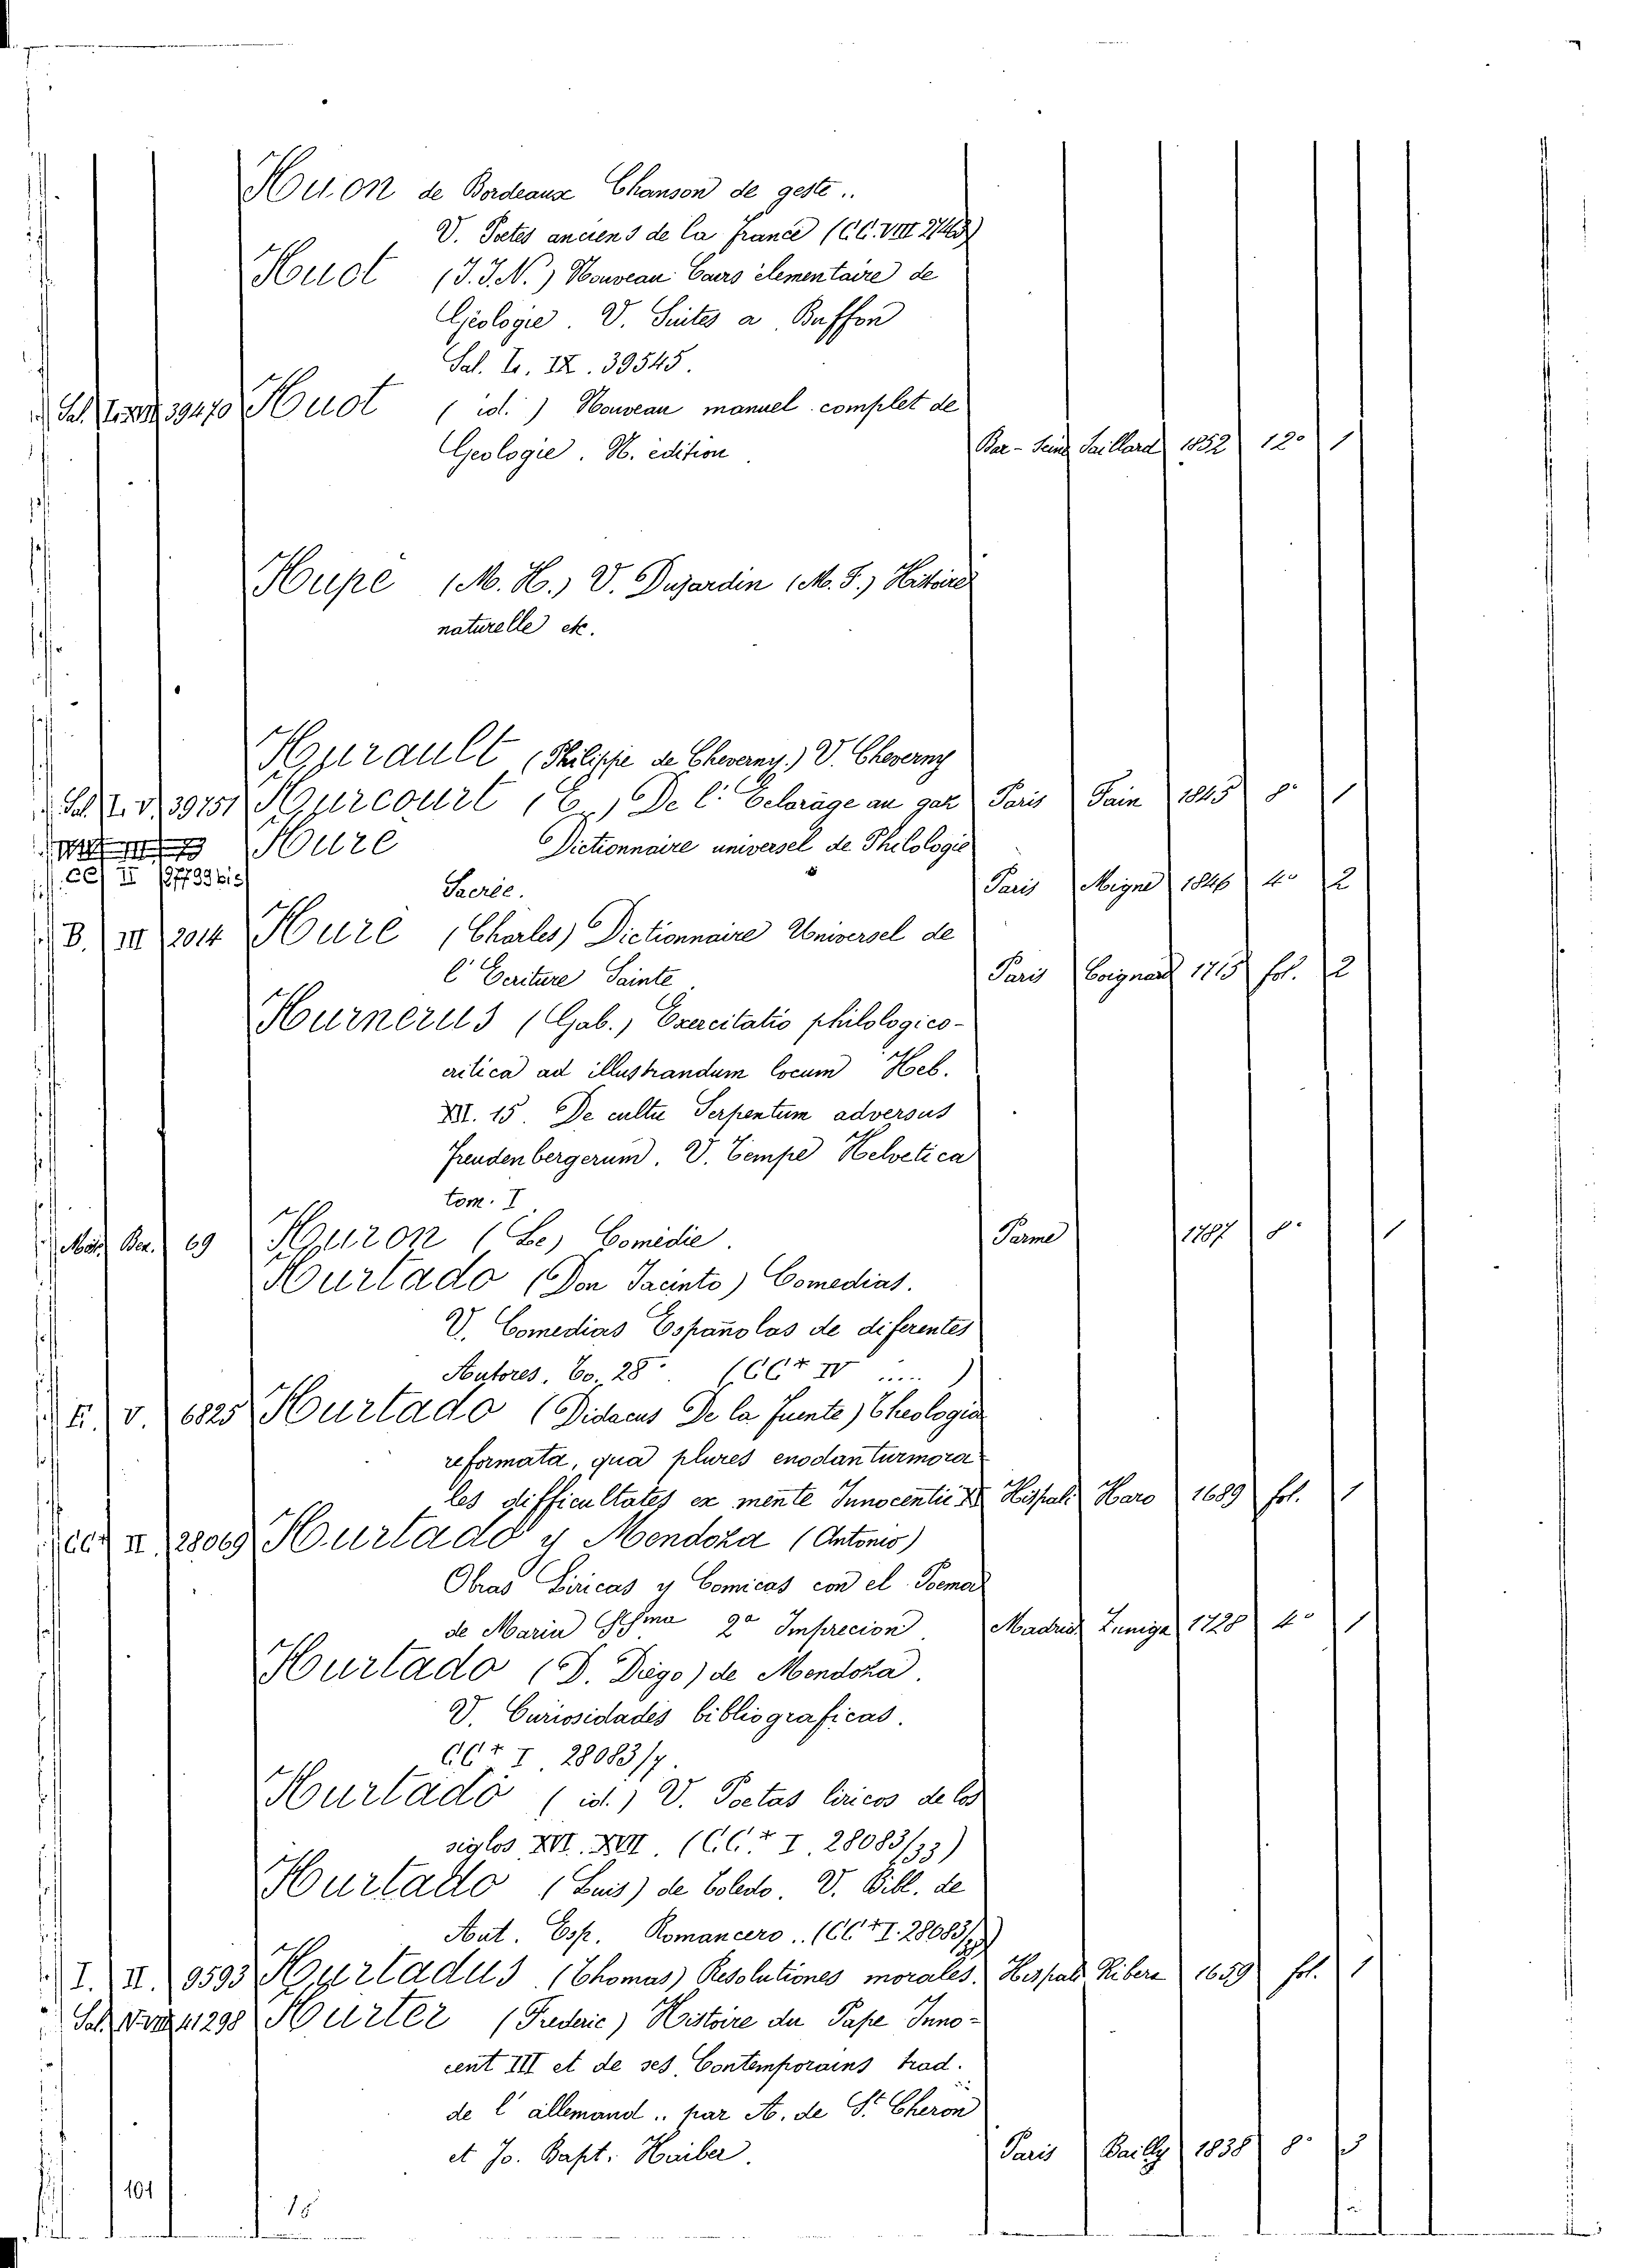 Huon de Bordeaux Chanson de geste..
V. Poetes anciens de la france (CC. VIII 27463)
Huot (J. J. N.) Nouveau Cours elementaire de
Géologie. V. Suites a Buffon
Sal. Tr. IX. 39545.
Sal. 39470 Huot (id.) Nouveau manuel complet de
Geologie. N. édition. Bar-Seine Saillard 1852 12° 1
Hupé (M. H.) V. Dujardin (M. F.) Histoire
naturelle etc.
Hurault (Philippe de Cheverny.) V. Cheverny
Sal. T. V. 39751 Hurcourt (E.) De l'Eclairage au gaz Paris Fain 1845 8° 1
Hure Dictionnaire universel de Philologie
CC II 27739 bis Sacrée. Paris Migne 1846 4° 2
B. III 2014 Huré (Charles) Dictionnaire Universel de
l'Ecriture Sainte. Paris Coignard 1715 fol. 2
Hurnerus (Gab.) Exercitatio philologico-
critica ad illustrandum locum Heb.
XII. 15. De cultu Serpentum adversus
freudenbergerum. V. Tempe Helvetica
tom. I.
Ber. 69 Huron (Le) Comédie. Parme 1787 8° 1
Hurtado (Don Jacinto) Comedias.
V. Comedias Españolas de diferentes
Autores. To. 28° (CC* IV .....)
E. V. 6825 Hurtado (Didacus De la fuente) Theologia
reformata, qua plures enodantur mora-
les difficultates ex mente Innocentii XI Hispali Haro 1689 fol. 1
CC* II 28069 Hurtado y Mendoza (Antonio)
Obras Liricas y Comicas con el Poema
de Maria SSma 2a Imprecion. Madrid Zuniga 1728 4° 1
Hurtado (D. Diego) de Mendoza.
V. Curiosidades bibliograficas.
CC* I 28083/7.
Hurtado (id.) V. Poetas liricos de los
siglos XVI. XVII. (CC* I. 28083/33)
Hurtado (Luis) de Toledo. V. Bibl. de
Aut. Esp. Romancero.. (CC* I. 28083/
I. II. 9593 Hurtadus (Thomas) Resolutiones morales. Hispali Ribera 1659 fol. 1
Sal. 41298 Hurter (Frederic) Histoire du Pape Inno-
cent III et de ses Contemporains trad.
de l'allemand.. par A. de St. Cheron
et Jo. Bapt. Haiber. Paris Bailly 1838 8° 3
101
15